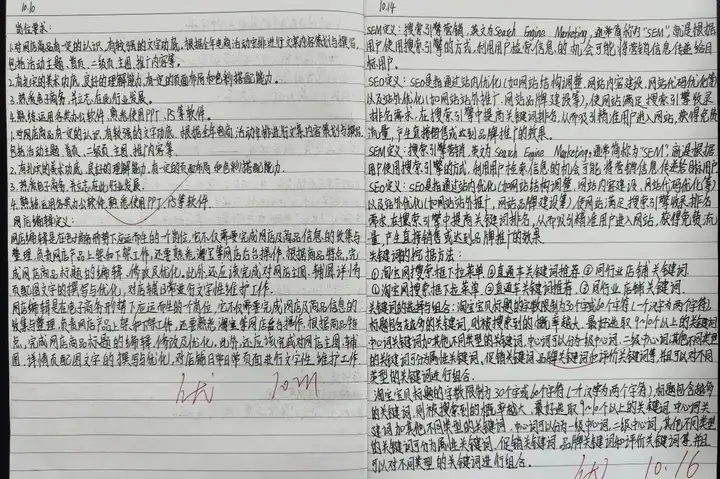 10.10
岗位要求:
1.对网店商品有一定的认识,有较强的文字功底,根据全年电商活动安排进行文案内容策划与撰写,
包括活动主题、首页、二级页、主图、推广内容等。
2.有一定的美术功底,良好的理解能力,有一定的页面布局和色彩搭配能力。
3.熟悉电子商务,并立志在此行业发展。
4.熟练运用各类办公软件,熟悉使用PPT、PS等软件。
1.对网店商品有一定的认识,有较强文字功底,根据全年电商活动安排进行文案内容策划与撰写
包括活动主题、首页、二级页、主图、推广内容等。
2.有一定的美术功底,良好的理解能力,有一定的页面布局和色彩搭配能力。
3.熟悉电子商务,并立志在此行业发展。
4.熟练运用各类办公软件,熟悉使用PPT、PS等软件。
网店编辑定义:
网店编辑是在电子商务形势下应运而生的一个岗位,它不仅需要完成网店及商品信息的收集与
整理,负责网店产品上架和下架工作,还要熟悉淘宝等网店后台操作。根据商品特点,完
成网店商品标题的编辑、修改及优化,此外还应该完成对网店主图、辅图、详情
页配图文字的撰写与优化,对店铺日常页面进行文字性维护工作。
网店编辑是在电子商务形势下应运而生的一个岗位,它不仅需要完成网店及商品信息的
收集与整理,负责网店产品上架和下架工作,还要熟悉淘宝等网店后台操作,根据商品特
点,完成网店商品标题的编辑、修改及优化,此外,还应该完成对网店主图、辅
图、详情页配图文字的撰写与优化,对店铺日常页面进行文字性维护工作
10.14
SEM定义:搜索引擎营销,英文为Search Engine Marketing,通常简称为"SEM",就是根据
用户使用搜索引擎的方式,利用用户检索信息的机会可能将营销信息传递给目
标用户。
SEO定义:SEO是指通过站内优化(如网站结构调整、网站内容建设、网站代码优化等)
以及站外优化(如网站站外推广、网站品牌建设等),使网站满足搜索引擎收录
排名需求,在搜索引擎中提高关键词排名,从而吸引精准用户进入网站,获得免费
流量,产生直接销售或达到品牌推广的效果。
SEM定义:搜索引擎营销,英文为Search Engine Marketing,通常简称为"SEM",就是根据
用户使用搜索引擎的方式,利用用户检索信息的机会可能将营销信息传递给目标用户
SEO定义:SEO是指通过站内优化(如网站结构调整、网站内容建设、网站代码优化等)
以及站外优化(如网站站外推广、网站品牌建设等),使网站满足搜索引擎收录排名
需求,在搜索引擎中提高关键词排名,从而吸引精准用户进入网站,获得免费流
量,产生直接销售或达到品牌推广的效果
关键词的挖掘方法:
①淘宝网搜索框下拉菜单 ②直通车关键词推荐 ③同行业店铺关键词
①淘宝网搜索框下拉菜单 ②直通车关键词推荐 ③同行业店铺关键词.
关键词的选择与组合:淘宝宝贝标题的字数限制为30个字或60个字符(一个汉字为两个字符),
标题包含越多的关键词,则被搜索到的概率越大,最好选取9~10个以上的关键词
中心词关键词加其他不同类型的关键词,中心词可以分为一级中心词、二级中心词,其他不同类型
的关键词可分为属性关键词、促销关键词、品牌关键词和评价关键词等,并且可以对不同
类型的关键词进行组合。
淘宝宝贝标题的字数限制为30个字或60个字符(一个汉字为两个字符),标题包含越多
的关键词,则被搜索到的概率越大,最好选取9~10个以上的关键词,中心词关
键词加其他不同类型的关键词,中心词可以分为一级中心词、二级中心词,其他不同类型
的关键词可分为属性关键词、促销关键词、品牌关键词和评价关键词等,并且
可以对不同类型的关键词进行组合.
10.16